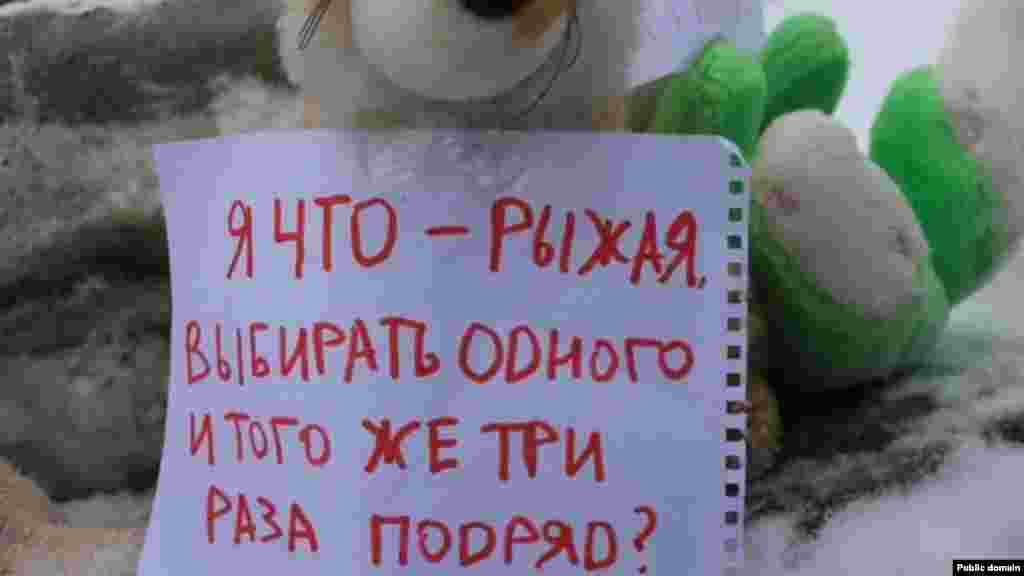 Я ЧТО - РЫЖАЯ,
ВЫБИРАТЬ ОДНОГО
И ТОГО ЖЕ ТРИ
РАЗА ПОДРЯД?
Public domain